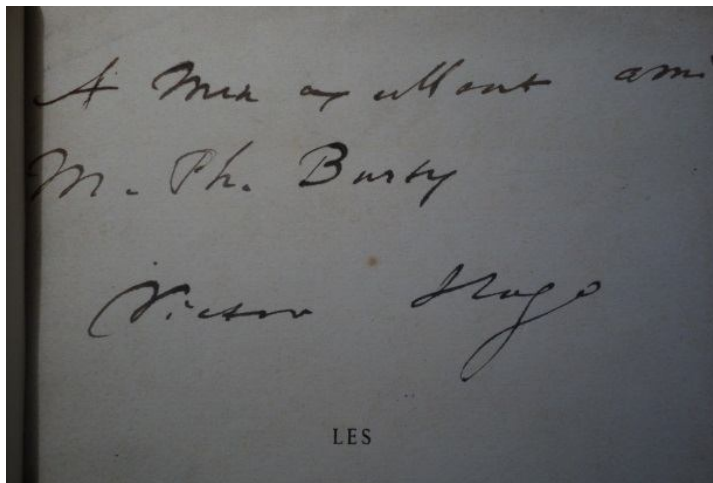 A Mon excellent ami
M. Ph. Burty
Victor Hugo
LES